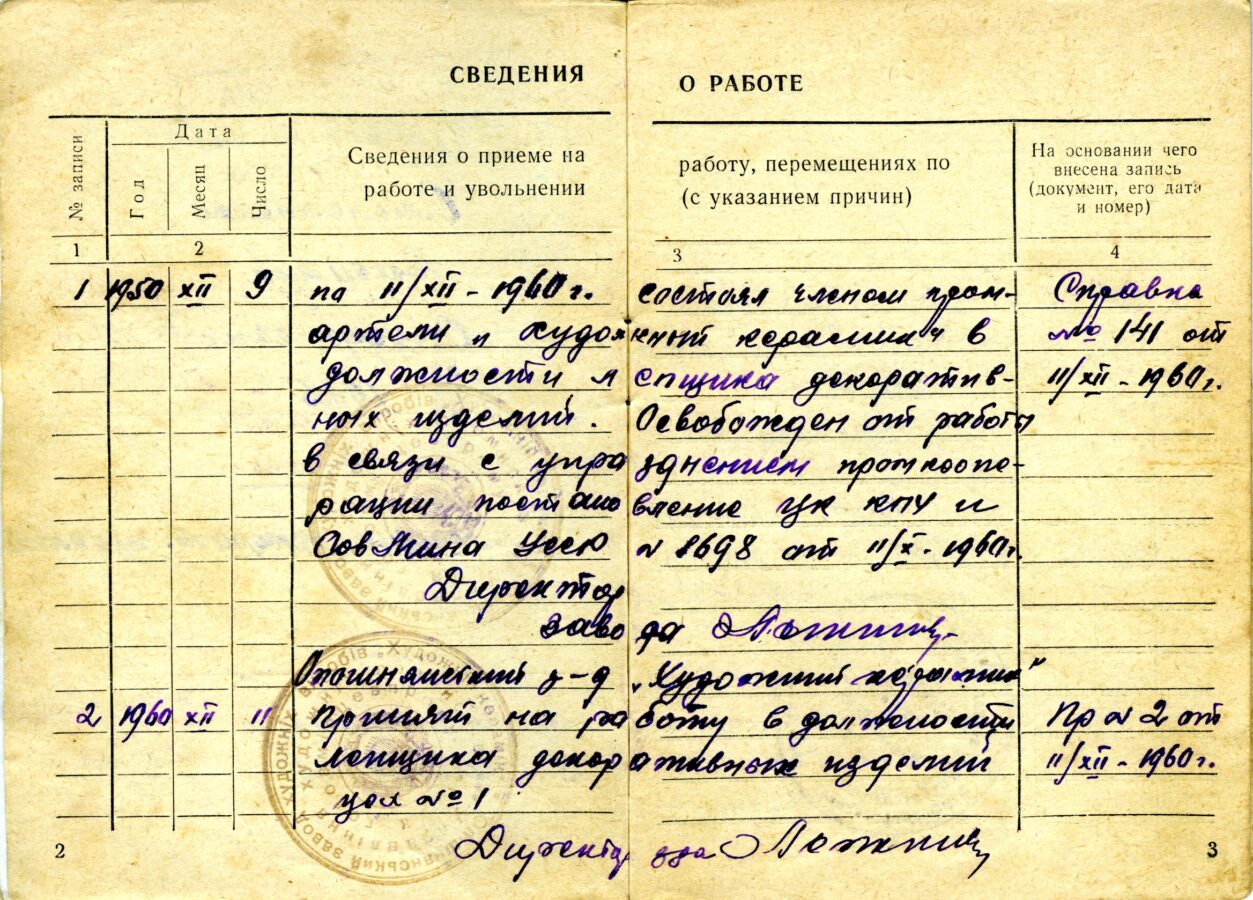 СВЕДЕНИЯ О РАБОТЕ
№ записи
Дата
Год
Месяц
Число
Сведения о приеме на работу, перемещениях по
работе и увольнении (с указанием причин)
На основании чего
внесена запись
(документ, его дата
и номер)
1 2 3 4
1 1950 XII 9 по 11/XII - 1960 г. состоял членом пром- Справка
артели „Художный керамик" в № 141 от
должности лепщика декоратив- 11/XII - 1960 г.
ных изделий. Освобожден от работы
в связи с упразднением промкоопе-
рации постановление ЦК КПУ и
СовМина УССР № 1698 от 11/X - 1960 г.
Директор
завода
Опошнянский з-д „Художний керамик"
2 1960 XII 11 Принят на работу в должности Пр № 2 от
лепщика декоративных изделий 11/XII - 1960 г.
цех № 1
Директор з-да
2 3